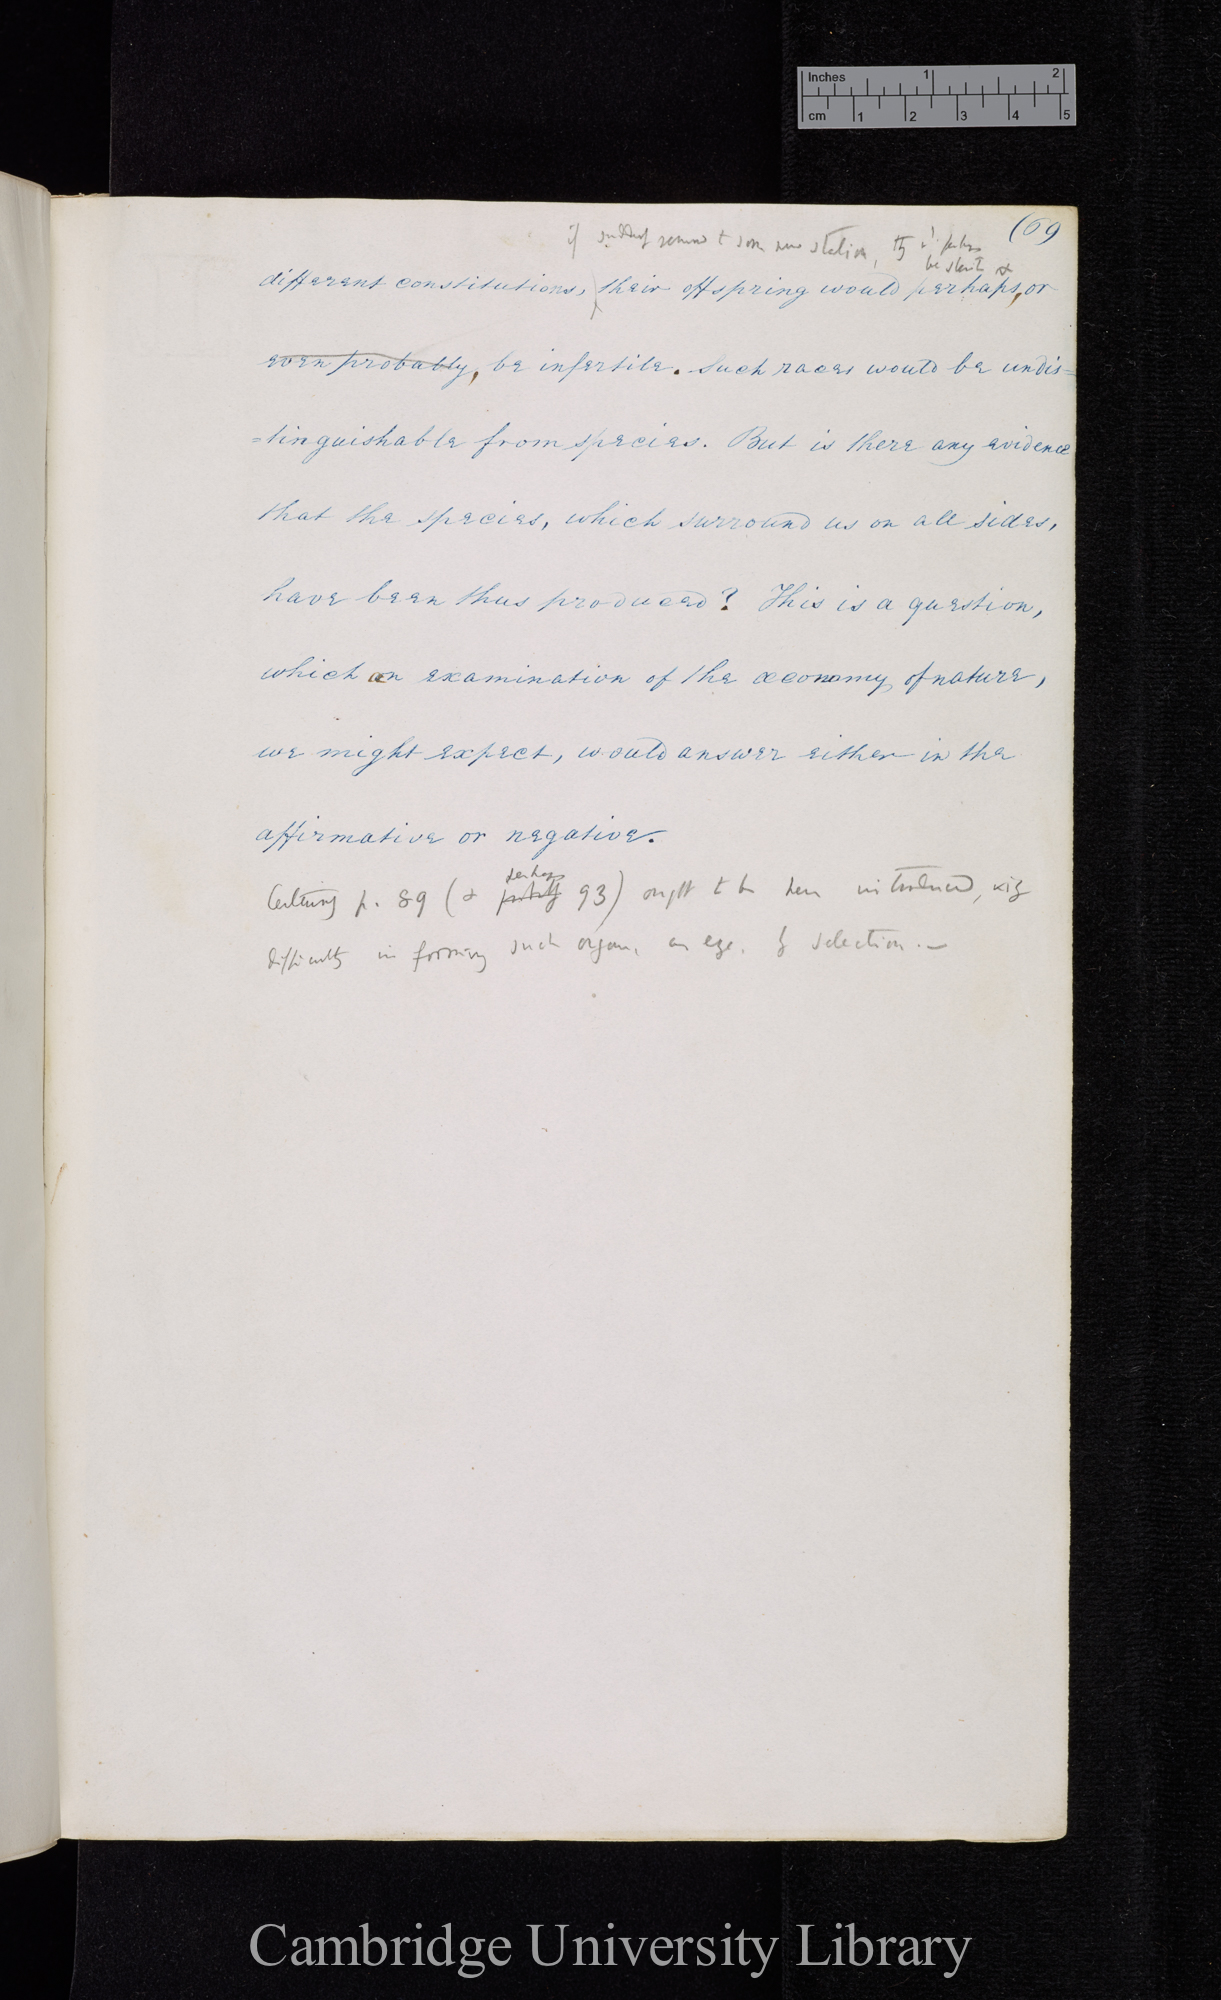 Inches 1 2
cm 1 2 3 4 5
(69
if suddenly removed to some new station, they wd. perhaps
be sterile &
different constitutions, their offspring would perhaps, or
even probably, be infertile. Such races would be undis=
=tinguishable from species. But is there any evidence
that the species, which surround us on all sides,
have been thus produced? This is a question,
which an examination of the œconomy of nature,
we might expect, would answer either in the
affirmative or negative.
perhaps
Certainly p. 89 (& probably 93) ought to be here introduced, viz
difficulty in forming such organ, as eye, by selection.—
Cambridge University Library